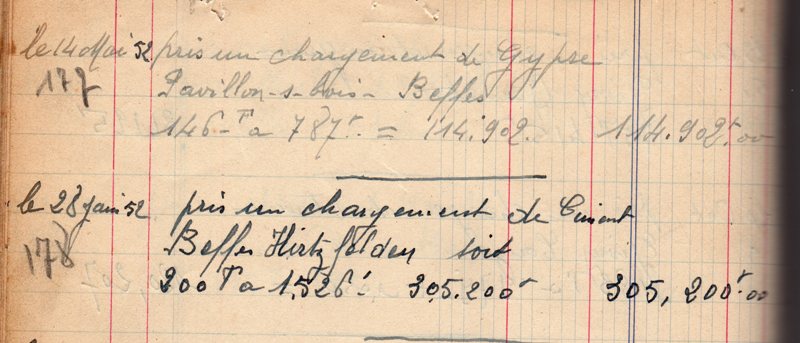 le 14 Mai 52 pris un chargement de Gypse
177 Pavillon-s-bois - Beffes
146-T a 787f. = 114.902. 114.902f.00
le 28 Juin 52 pris un chargement de Ciment
178 Beffes Hirtzfelden soit
200 T a 1,526f. 305.200f 305,200f.00